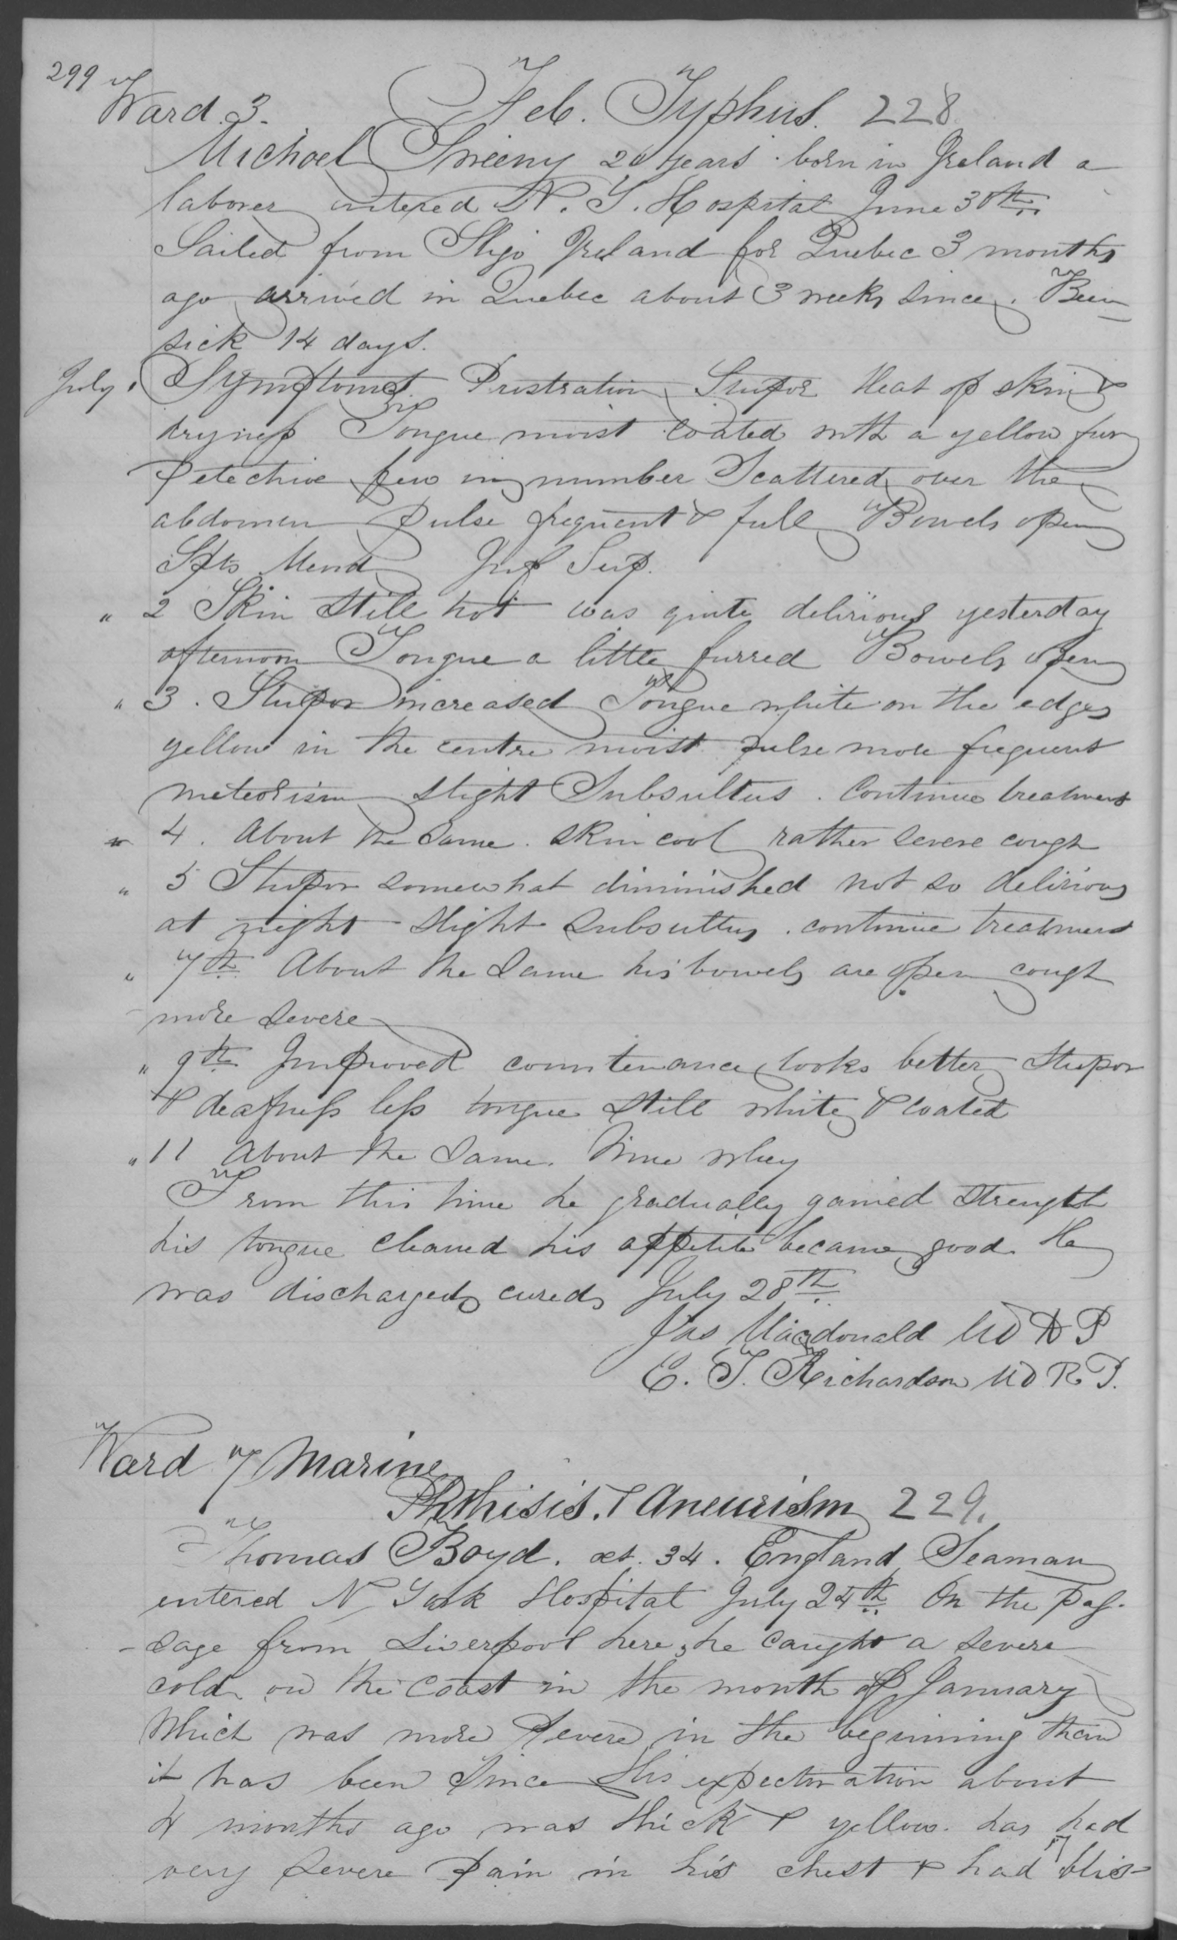 299
Ward 3. Feb. Typhus. 228
Michael Sweeny 20 years born in Ireland a
laborer entered N. Y. Hospital June 30th
Sailed from Sligo Ireland for Quebec 3 months
ago arrived in Quebec about 3 weeks since. Been
sick 14 days.
July 1 Symptoms Prostration Stupor Heat of skin &
dryness Tongue moist coated with a yellow fur
Petechiae few in number Scattered over the
abdomen pulse frequent & full Bowels open
Inf Serp.
" 2 Skin still hot was quite delirious yesterday
afternoon Tongue a little furred Bowels open
" 3. Stupor increased Tongue white on the edges
yellow in the centre moist pulse more frequent
meteorism slight Subsultus. Continue treatment
" 4. About the Same. Skin cool rather severe cough
" 5 Stupor somewhat diminished not so delirious
at night slight subsultus. continue treatment
" 7th About the Same his bowels are open cough
more severe
" 9th Improved countenance looks better Stupor
& deafness less tongue still white & coated
" 11 About the Same. Wine whey
From this time he gradually gained Strength
his tongue cleaned his appetite became good. He
was discharged cured July 28th
Jas Macdonald MD A P
C. T. Richardson MD R. P.
Ward 7 Marine
Phthisis. & Aneurism 229.
Thomas Boyd. aet. 34. England Seaman
entered N York Hospital July 24th On the pas-
-sage from Liverpool here, he caught a severe
cold on the coast in the month of January
Which was more Severe in the beginning than
it has been Since His expectoration about
4 months ago was thick & yellow. has had
very severe pain in his chest & had 7 blis-